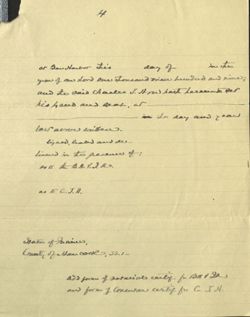 4
at Bar Harbor this day of in the
year of our Lord one thousand nine hundred and nine;
and the said Charles J. H. hath hereunto set
his hand and seal, at
the day and year
last above written.
Signed, sealed and
in the presence of:
as to
as to C. J. H.
State of Maine,
County of Hancock, ss.
Add form of notarial certif. for
and form of Consular certif. for C. J. H.